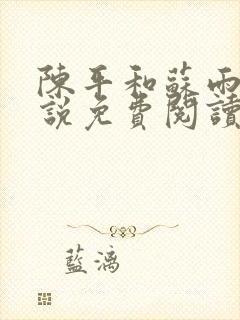 陳平和蘇雨
說免費閱讀
藍漓